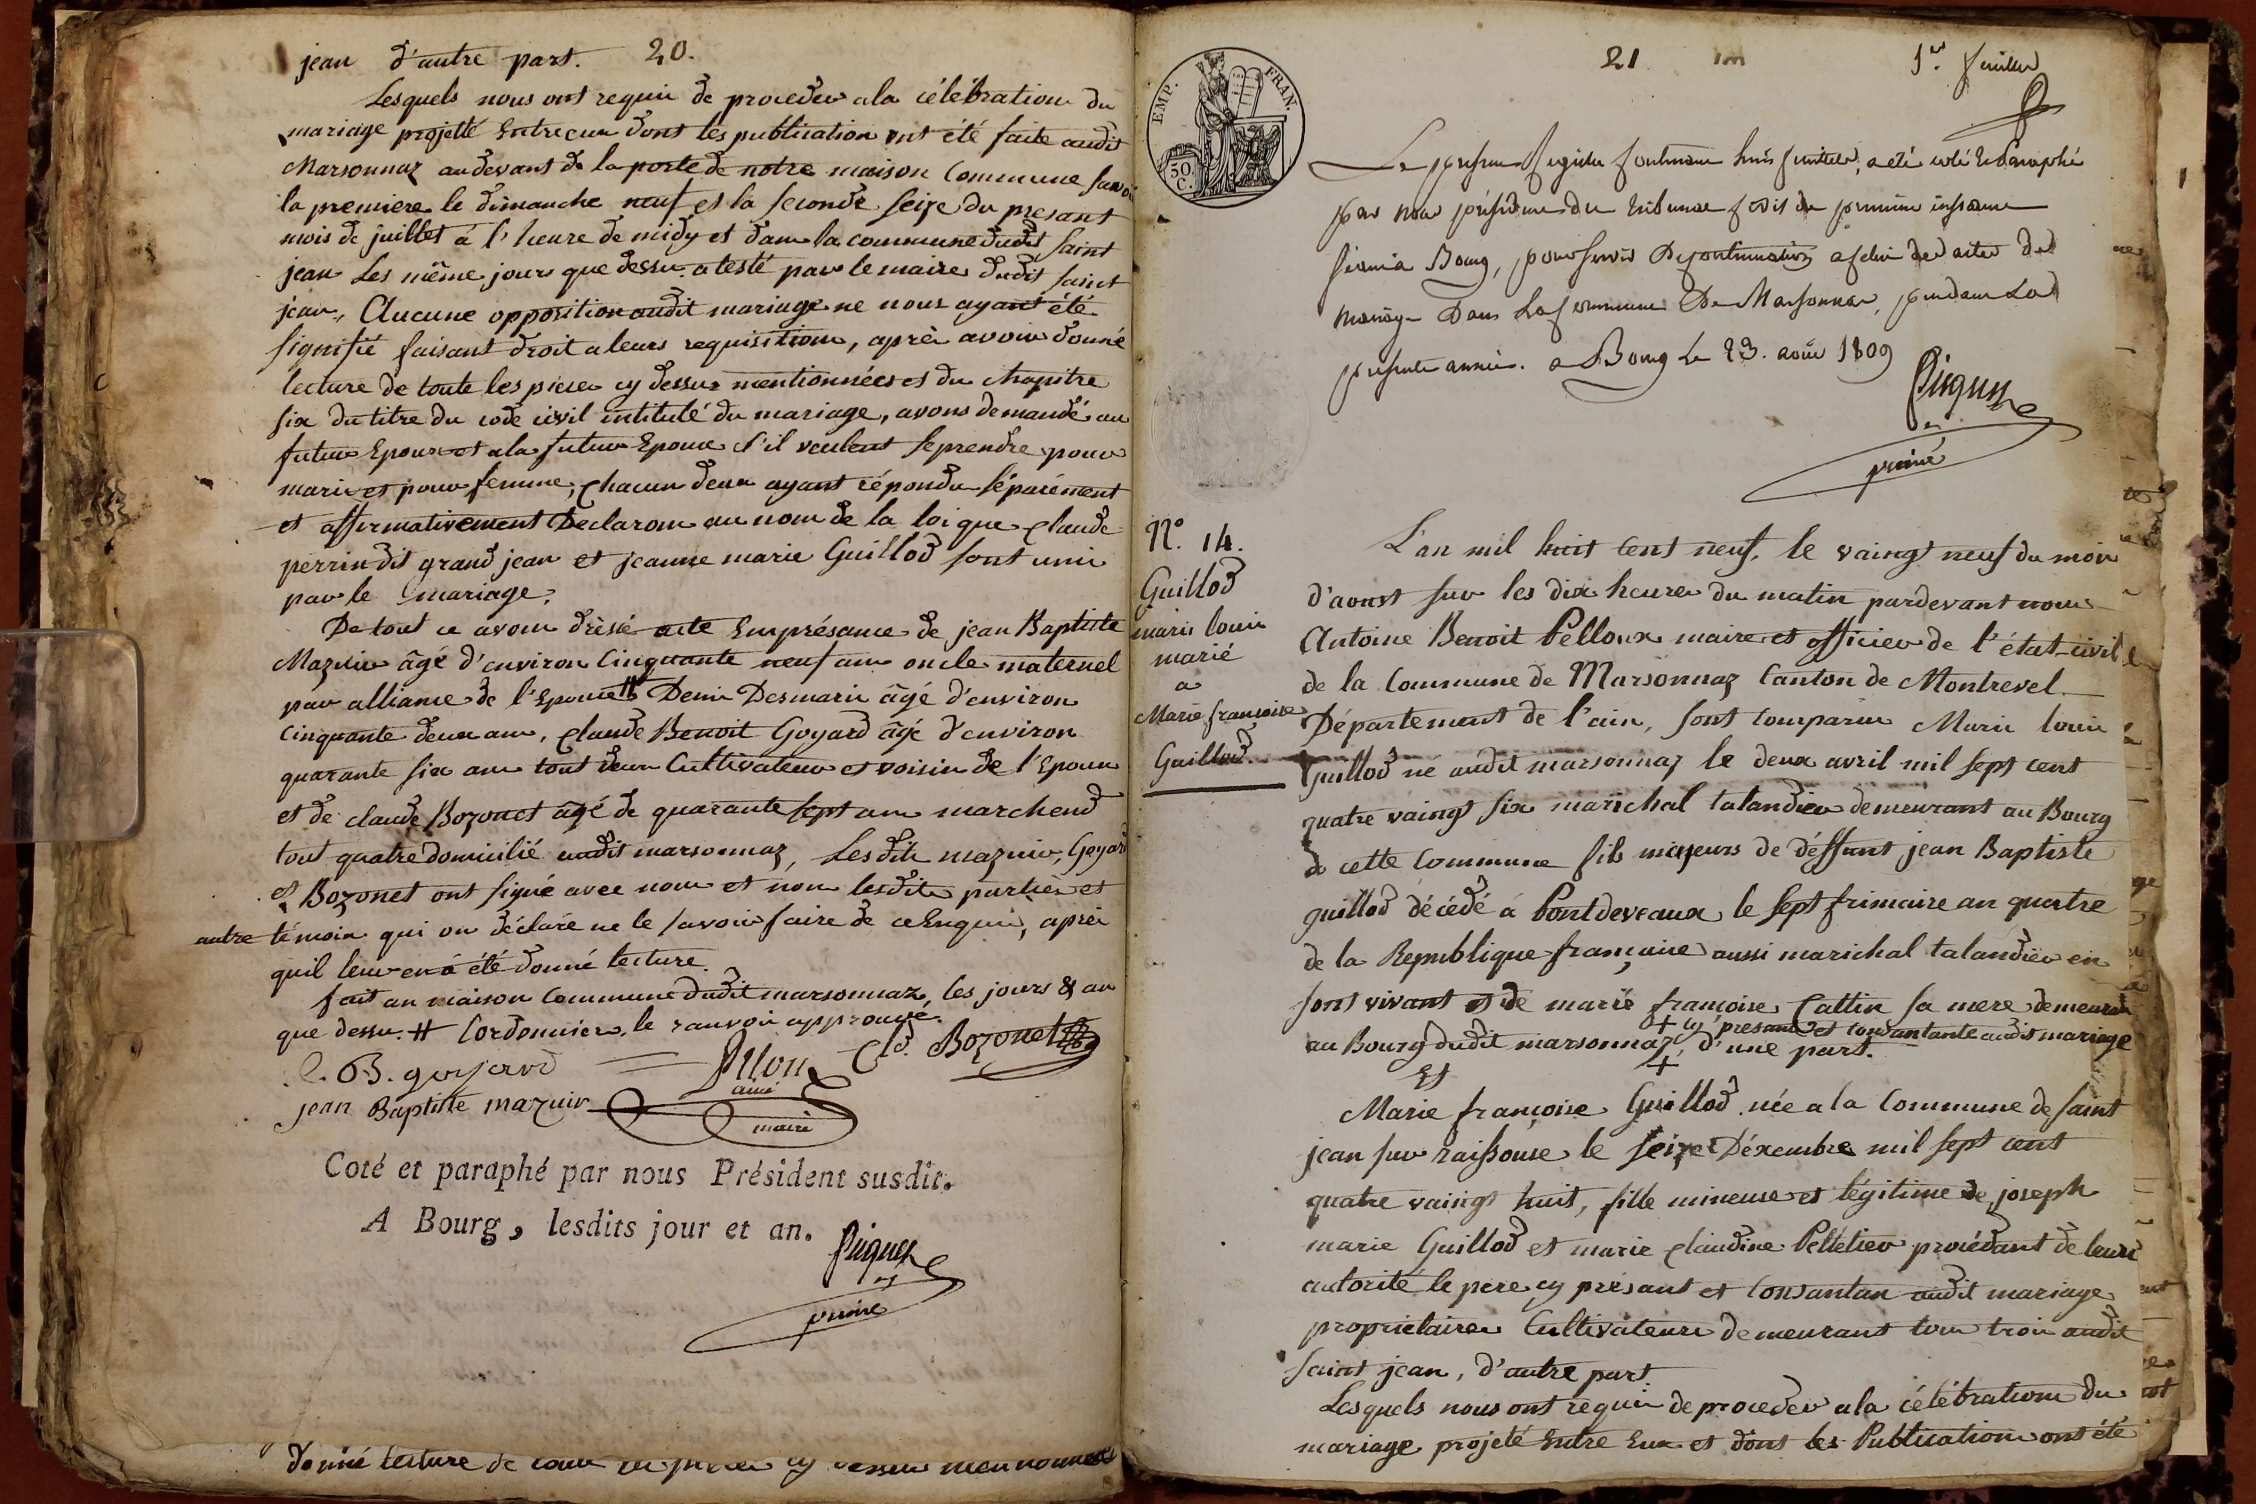 20.
jean d'autre part.
Lesquels nous ont requis de proceder a la célébration du
mariage projetté Entre eux dont les publication ont été faite audit
Marsonnaz au devant de la porte de notre maison Commune savoir
la premiere le dimanche neuf et la seconde seize du present
mois de juillet à l'heure de midy et dans la commune dudit saint
jean les même jours que dessus atesté par le maire dudit saint
jean, Aucune opposition audit mariage ne nous ayant été
signifié faisant droit a leurs requisitions, après avoir donné
lecture de toute les pieces cy dessus mentionnées et du chapitre
six du titre du code civil intitulé du mariage, avons demandé au
futur Epoux et a la futur Epouse s'il veulent se prendre pour
mari et pour femme, chacun deux ayant répondu séparément
et affirmativement Declarons au nom de la loi que claude
perrin dit grand jean et jeanne marie Guillod sont unis
par le mariage.
De tout ce avons drèssé acte En présance de jean Baptiste
Mazuir âgé d'environ Cinquante neuf ans oncle maternel
par alliance de l'Epouse # Denis Desmaris âgé d'environ
cinquante deux ans, claude Benoit Goyard âgé d'environ
quarante six ans tout deux Cultivateurs et voisin de l'Epoux
et de claude Bozonet âgé de quarante sept ans marchend
tout quatre domicilié audit marsonnaz, Lesdits mazuir, Goyard
et Bozonet ont signé avec nous et non lesdite parties et
autre témoin qui on déclaré ne le savoir faire de ce Enquis, après
quil leur en à été donné lecture.
fait en maison Commune dudit marsonnaz, les jours & an
que dessus. # Cordonnier, le ranvoi approuvé.
C. B. goyard
Cld. Bozonet
ainé
jean Baptiste mazuir
maire
Coté et paraphé par nous Président susdit.
A Bourg, lesdits jour et an.
Piquet
donné lecture de toute les pieces cy dessus mentionnées
21
1er feuillet
EMP. FRAN.
50 C.
Le présent registre contenant huit feuillets, a été coté et Paraphé
par nous président du tribunal civil de première instance
séant à Bourg, pour servir De continuation a celui des actes de
mariage Dans La Commune De Marsonnas, pendant La
présente année. a Bourg le 23. août 1809
Piquet
N.° 14.
Guillod
marie louis
marié
a
Marie françoise
Guillod.
L'an mil huit cent neuf, le vaingt neuf du mois
d'aoust sur les dix heures du matin pardevant nous
Antoine Benoit Pelloux maire et officier de l'état-civil
de la Commune de Marsonnaz Canton de Montrevel
Département de l'ain, sont comparus Marie louis
Guillod né audit marsonnaz le deux avril mil sept cent
quatre vaingt six marichal talandier demeurant au Bourg
de cette Commune fils majeurs de déffunt jean Baptiste
guillod décédé à Pontdeveaux le sept frimaire an quatre
de la Republique française aussi marichal talandier en
sont vivant et de marie françoise Cattin sa mere demeurant
+ cy présante et consantante audit mariage
au Bourg dudit marsonnaz, + d'une part.
Et
Marie françoise Guillod née a la Commune de saint
jean sur raissouse le seize Déxembre mil sept cent
quatre vaingt huit, fille mineuse et légitime de joseph
marie Guillod et marie claudine Pelletier procédant de leurs
autorité le pere cy présant et Consantan audit mariage
propriétaires Cultivateurs demeurant tous trois audit
saint jean, d'autre part.
Lesquels nous ont requis de proceder a la célébrations du
mariage projeté Entre Eux et dont les Publications ont été